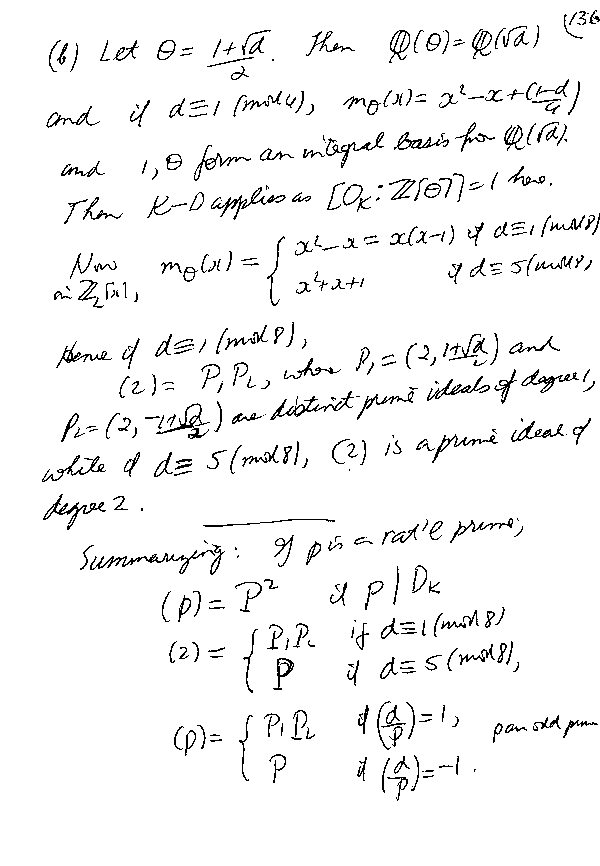 (136
(b) Let θ = (1+√d)/2. Then ℚ(θ) = ℚ(√d)
and if d ≡ 1 (mod 4), m_θ(x) = x² − x + ((1−d)/4)
and 1, θ form an integral basis for ℚ(√d).
Then K–D applies as [O_K : ℤ[θ]] = 1 here.
Now in ℤ₂[x], m_θ(x) = { x² − x = x(x−1) if d ≡ 1 (mod 8)
x² + x + 1 if d ≡ 5 (mod 8)
Hence if d ≡ 1 (mod 8),
(2) = P₁P₂, where P₁ = (2, (1+√d)/2) and
P₂ = (2, (−1+√d)/2) are distinct prime ideals of degree 1,
while if d ≡ 5 (mod 8), (2) is a prime ideal of
degree 2.
Summarizing: If p is a rat'l prime,
(p) = P² if p | D_K
(2) = { P₁P₂ if d ≡ 1 (mod 8)
P if d ≡ 5 (mod 8),
(p) = { P₁P₂ if (d/p) = 1, p an odd prime
P if (d/p) = −1.